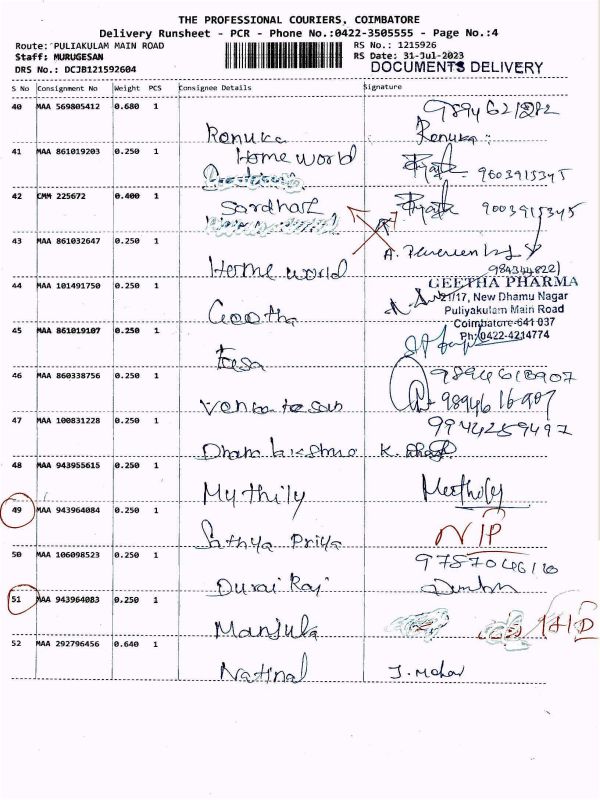 THE PROFESSIONAL COURIERS, COIMBATORE
Delivery Runsheet - PCR - Phone No.:0422-3505555 - Page No.:4
Route: PULIAKULAM MAIN ROAD
RS No.: 1215926
Staff: MURUGESAN
RS Date: 31-Jul-2023
DRS No.: DCJB121592604
DOCUMENTS DELIVERY
S No Consignment No Weight PCS Consignee Details Signature
40 MAA 569805412 0.680 1
Renuka Renuka
41 MAA 861019203 0.250 1
Home world 9003915345
42 CMM 225672 0.400 1
9003915345
43 MAA 861032647 0.250 1
Home world
44 MAA 101491750 0.250 1
GEETHA PHARMA
21/17, New Dhamu Nagar
Puliyakulam Main Road
Coimbatore-641 037
Ph:0422-4214774
Geetha
45 MAA 861019107 0.250 1
46 MAA 860338756 0.250 1
9894616907
Venkatesan 9894616907
47 MAA 100831228 0.250 1
9944259497
48 MAA 943955615 0.250 1
Mythily
49 MAA 943964084 0.250 1
Sathya Priya
50 MAA 106098523 0.250 1
Durai Raj
51 MAA 943964083 0.250 1
Manjula
52 MAA 292796456 0.640 1
National J. Mohan